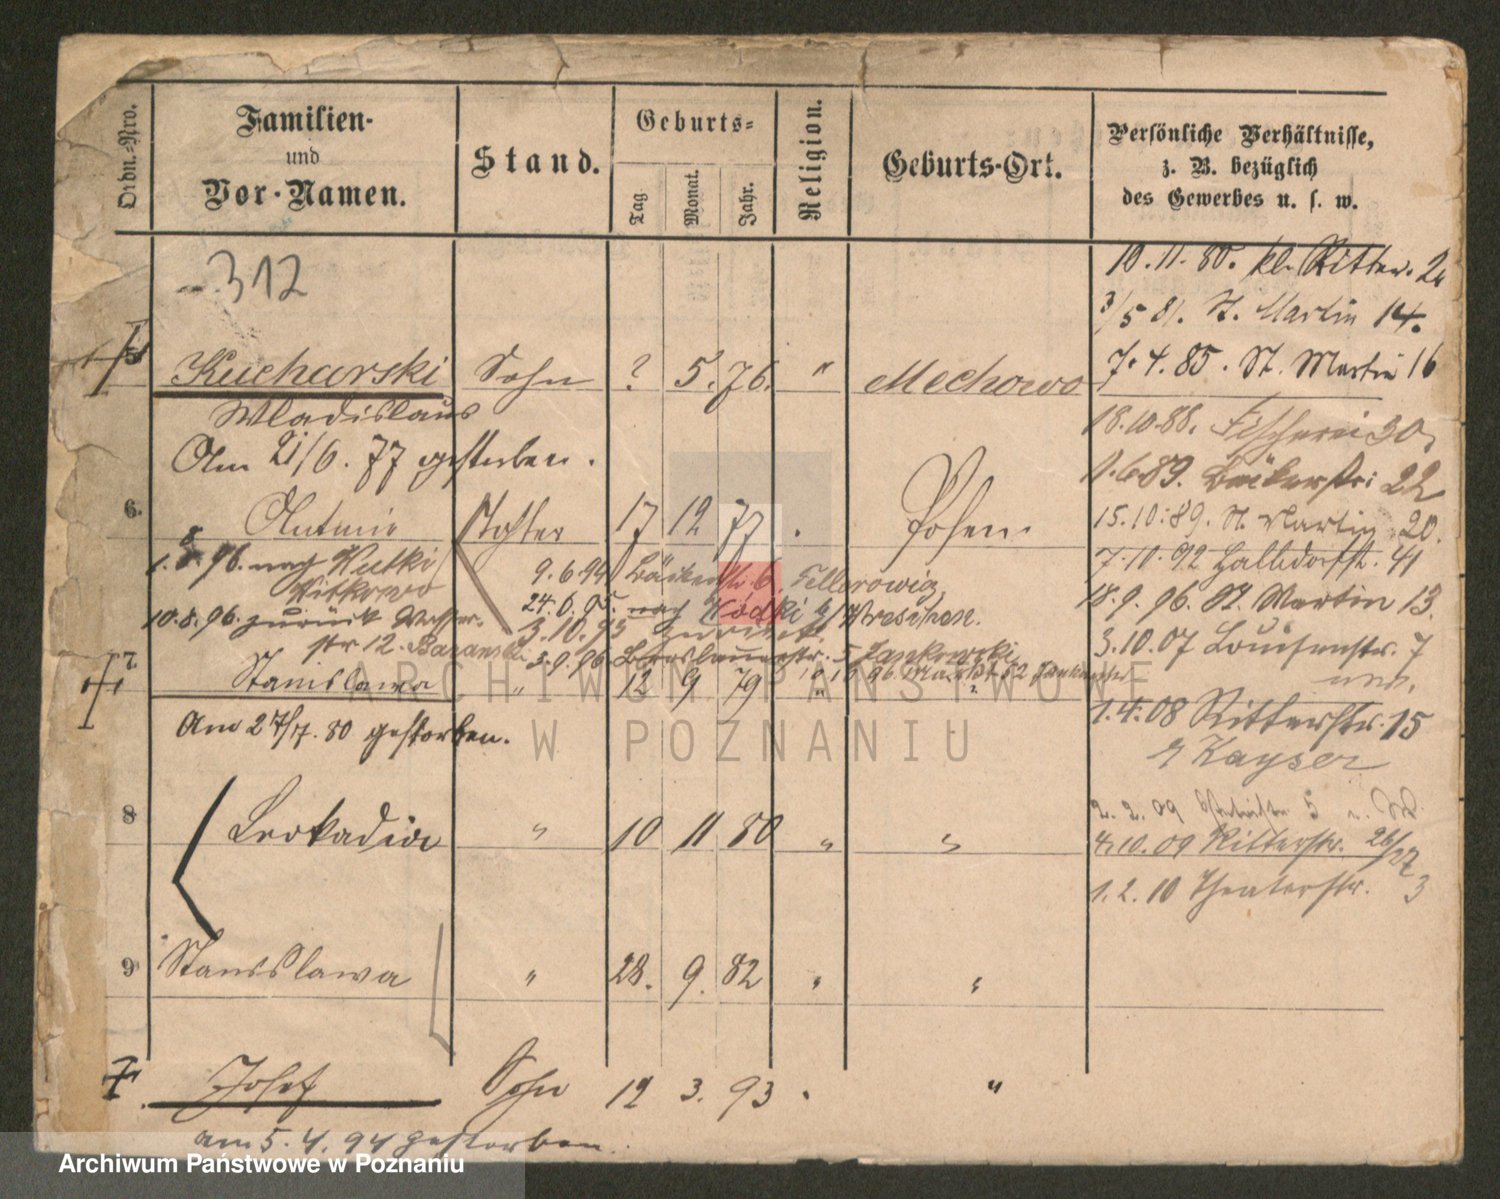 Ordn.-Nro.
Familien-
und
Vor-Namen.
Stand.
Geburts-
Tag
Monat.
Jahr.
Religion.
Geburts-Ort.
Persönliche Verhältnisse,
z. B. bezüglich
des Gewerbes u. s. w.
312
10.11.80. kl. Ritter. 2
3/5 81. St. Martin 14.
7.4.85. St. Martin 16
5 Kucharski Sohn ? 5. 76. " Mechowo
Wladislaus
18.10.88. Fischerei 30
Am 21/6. 77 gestorben.
1.6.89. Bäckerstr. 22
6. Antonie Tochter 17 12 77 Posen
15.10.89. St. Martin 20.
7.10.92 Halbdorfst. 41
1.8.96. nach Hutki
Witkowo
9.6.94 Bäckerstr. 6,
24.6.95. nach Wreschen.
18.9.96. St. Martin 13.
10.8.96. zurück
3.10.95 zurück
str 12. Baranski
3.9.96 Breslauerstr. 5 Jankowski
3.10.07 Louisenstr. 7
7. Stanislawa " 12 9 79 "
1.4.08 Ritterstr. 15
Am 27/7. 80 gestorben.
Kayser
2.2.09 5
8 Leokadia " 10 11 80 " "
4.10.09 Ritterstr. 26/27
1.2.10 Theaterstr. 3
9 Stanislawa " 28. 9. 82 " "
Josef Sohn 12 3. 93 "
am 5.4.94 gestorben.
ARCHIWUM PAŃSTWOWE
W POZNANIU
Archiwum Państwowe w Poznaniu